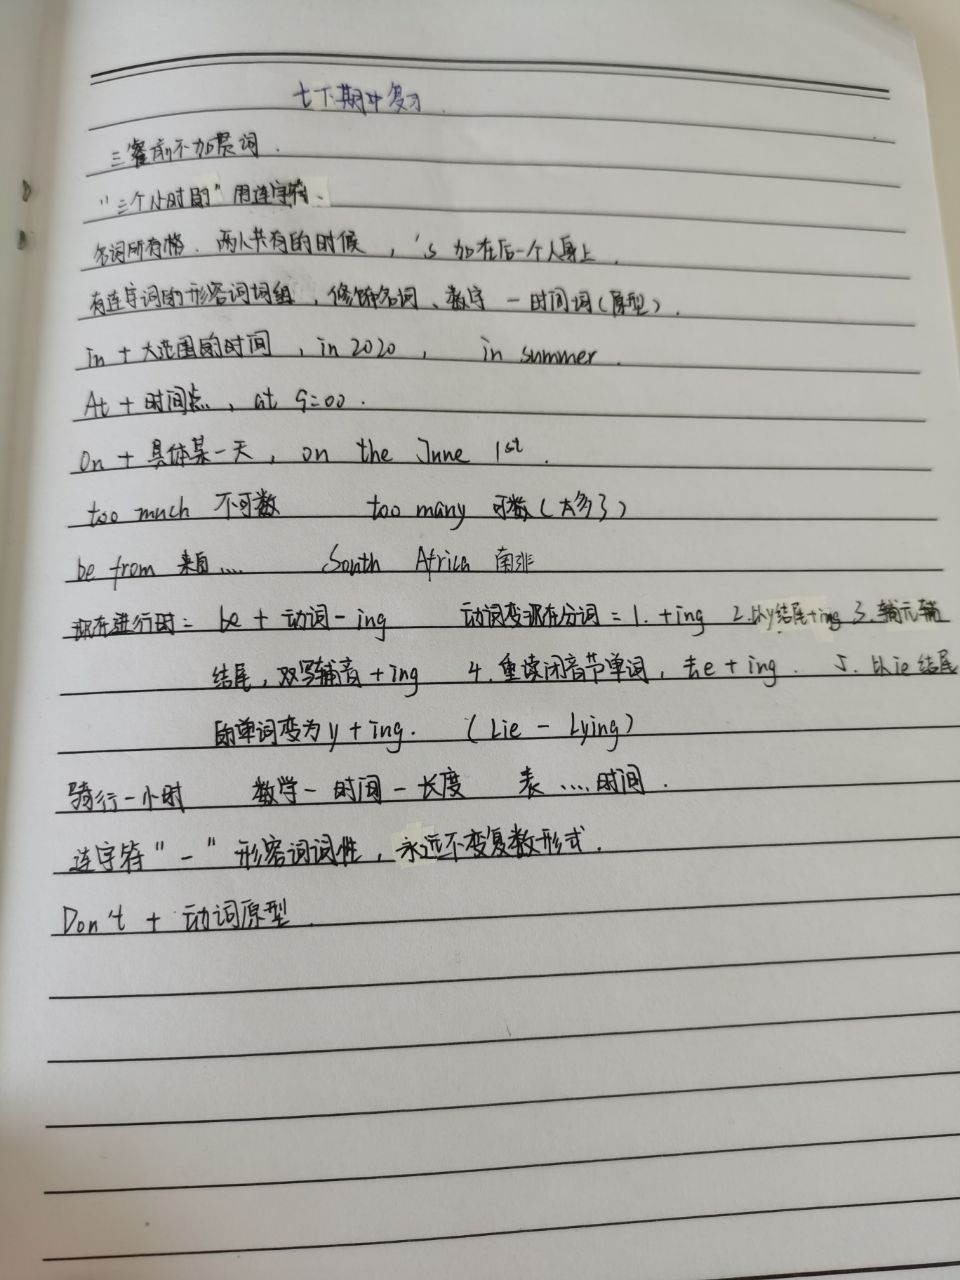 七下期中复习.
三餐前不加贯词.
"三个小时的"用连字符、
名词所有格. 两人共有的时候, 's 加在后一个人身上.
有连字词的形容词词组, 修饰名词、数字-时间词(原型).
in + 大范围的时间, in 2020, in summer.
At + 时间点, at 9:00.
On + 具体某一天, on the June 1st.
too much 不可数 too many 可数(太多了)
be from 来自.... South Africa 南非
现在进行时: be + 动词-ing 动词变现在分词: 1. +ing 2.以y结尾+ing 3.辅元辅
结尾, 双写辅音+ing 4.重读闭音节单词, 去e+ing. 5.以ie结尾
的单词变为y+ing. (Lie - Lying)
骑行一小时 数学-时间-长度 表....时间.
连字符"-"形容词词性, 永远不变复数形式.
Don't + 动词原型.